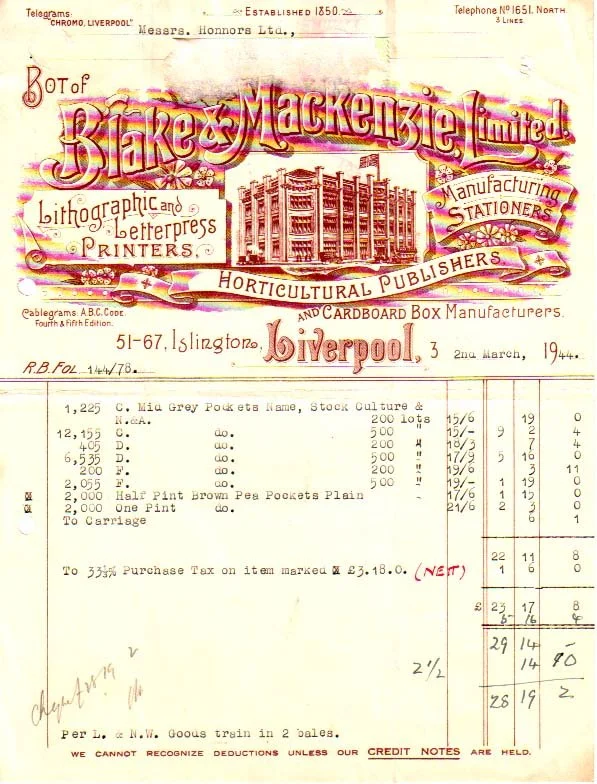 Telegrams: "CHROMO, LIVERPOOL"
ESTABLISHED 1850.
Telephone Nº 1651, NORTH. 3 LINES.
Messrs. Honnors Ltd.,
BOT OF
Blake & Mackenzie, Limited.
Lithographic and Letterpress PRINTERS,
Manufacturing STATIONERS
HORTICULTURAL PUBLISHERS
AND CARDBOARD BOX Manufacturers.
Cablegrams: A.B.C. CODE. Fourth & Fifth Edition.
51-67, Islington, Liverpool, 3 2nd March, 1944.
R.B. FOL 144/78.
1,225 C. Mid Grey Pockets Name, Stock Culture &
N.&A. 200 lots 15/6 19 0
12,155 C. do. 500 " 15/- 9 2 4
405 D. do. 200 " 18/3 7 4
6,535 D. do. 500 " 17/9 5 16 0
200 F. do. 200 " 19/6 3 11
2,055 F. do. 500 " 19/- 1 19 0
2,000 Half Pint Brown Pea Pockets Plain 17/6 1 15 0
2,000 One Pint do. 21/6 2 3 0
To Carriage 6 1
22 11 8
To 33⅓% Purchase Tax on item marked £3.18.0. (NETT) 1 6 0
£ 23 17 8
5 16 4
29 14 -
2½ 14 10
28 19 2
Per L. & N.W. Goods train in 2 bales.
WE CANNOT RECOGNIZE DEDUCTIONS UNLESS OUR CREDIT NOTES ARE HELD.